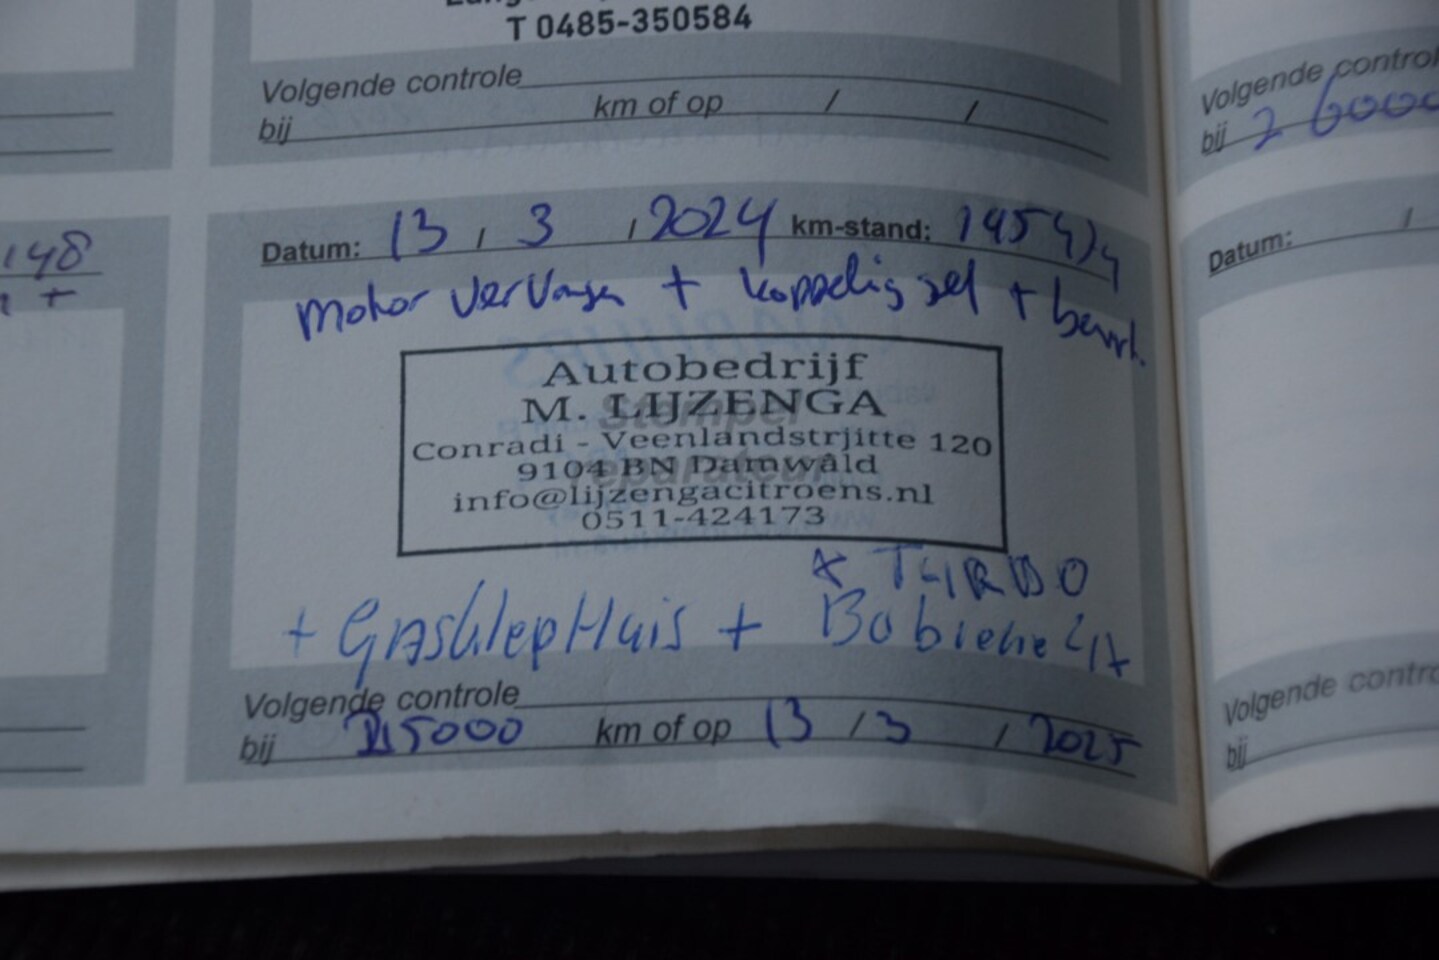 T 0485-350584
Volgende controle
bij km of op / /
Volgende control
bij 26000
148
+
Datum: 13 / 3 / 2024 km-stand:
motor vervangen + koppeling set +
Autobedrijf
M. LIJZENGA
Conradi - Veenlandstrjitte 120
9104 BN Damwâld
info@lijzengacitroens.nl
0511-424173
Stempel
reparateur
+ TURBO
+ GASKlepHuis + Bobiene
Volgende controle
bij 15000 km of op 13 / 3 / 2025
Datum: /
Volgende contro
bij